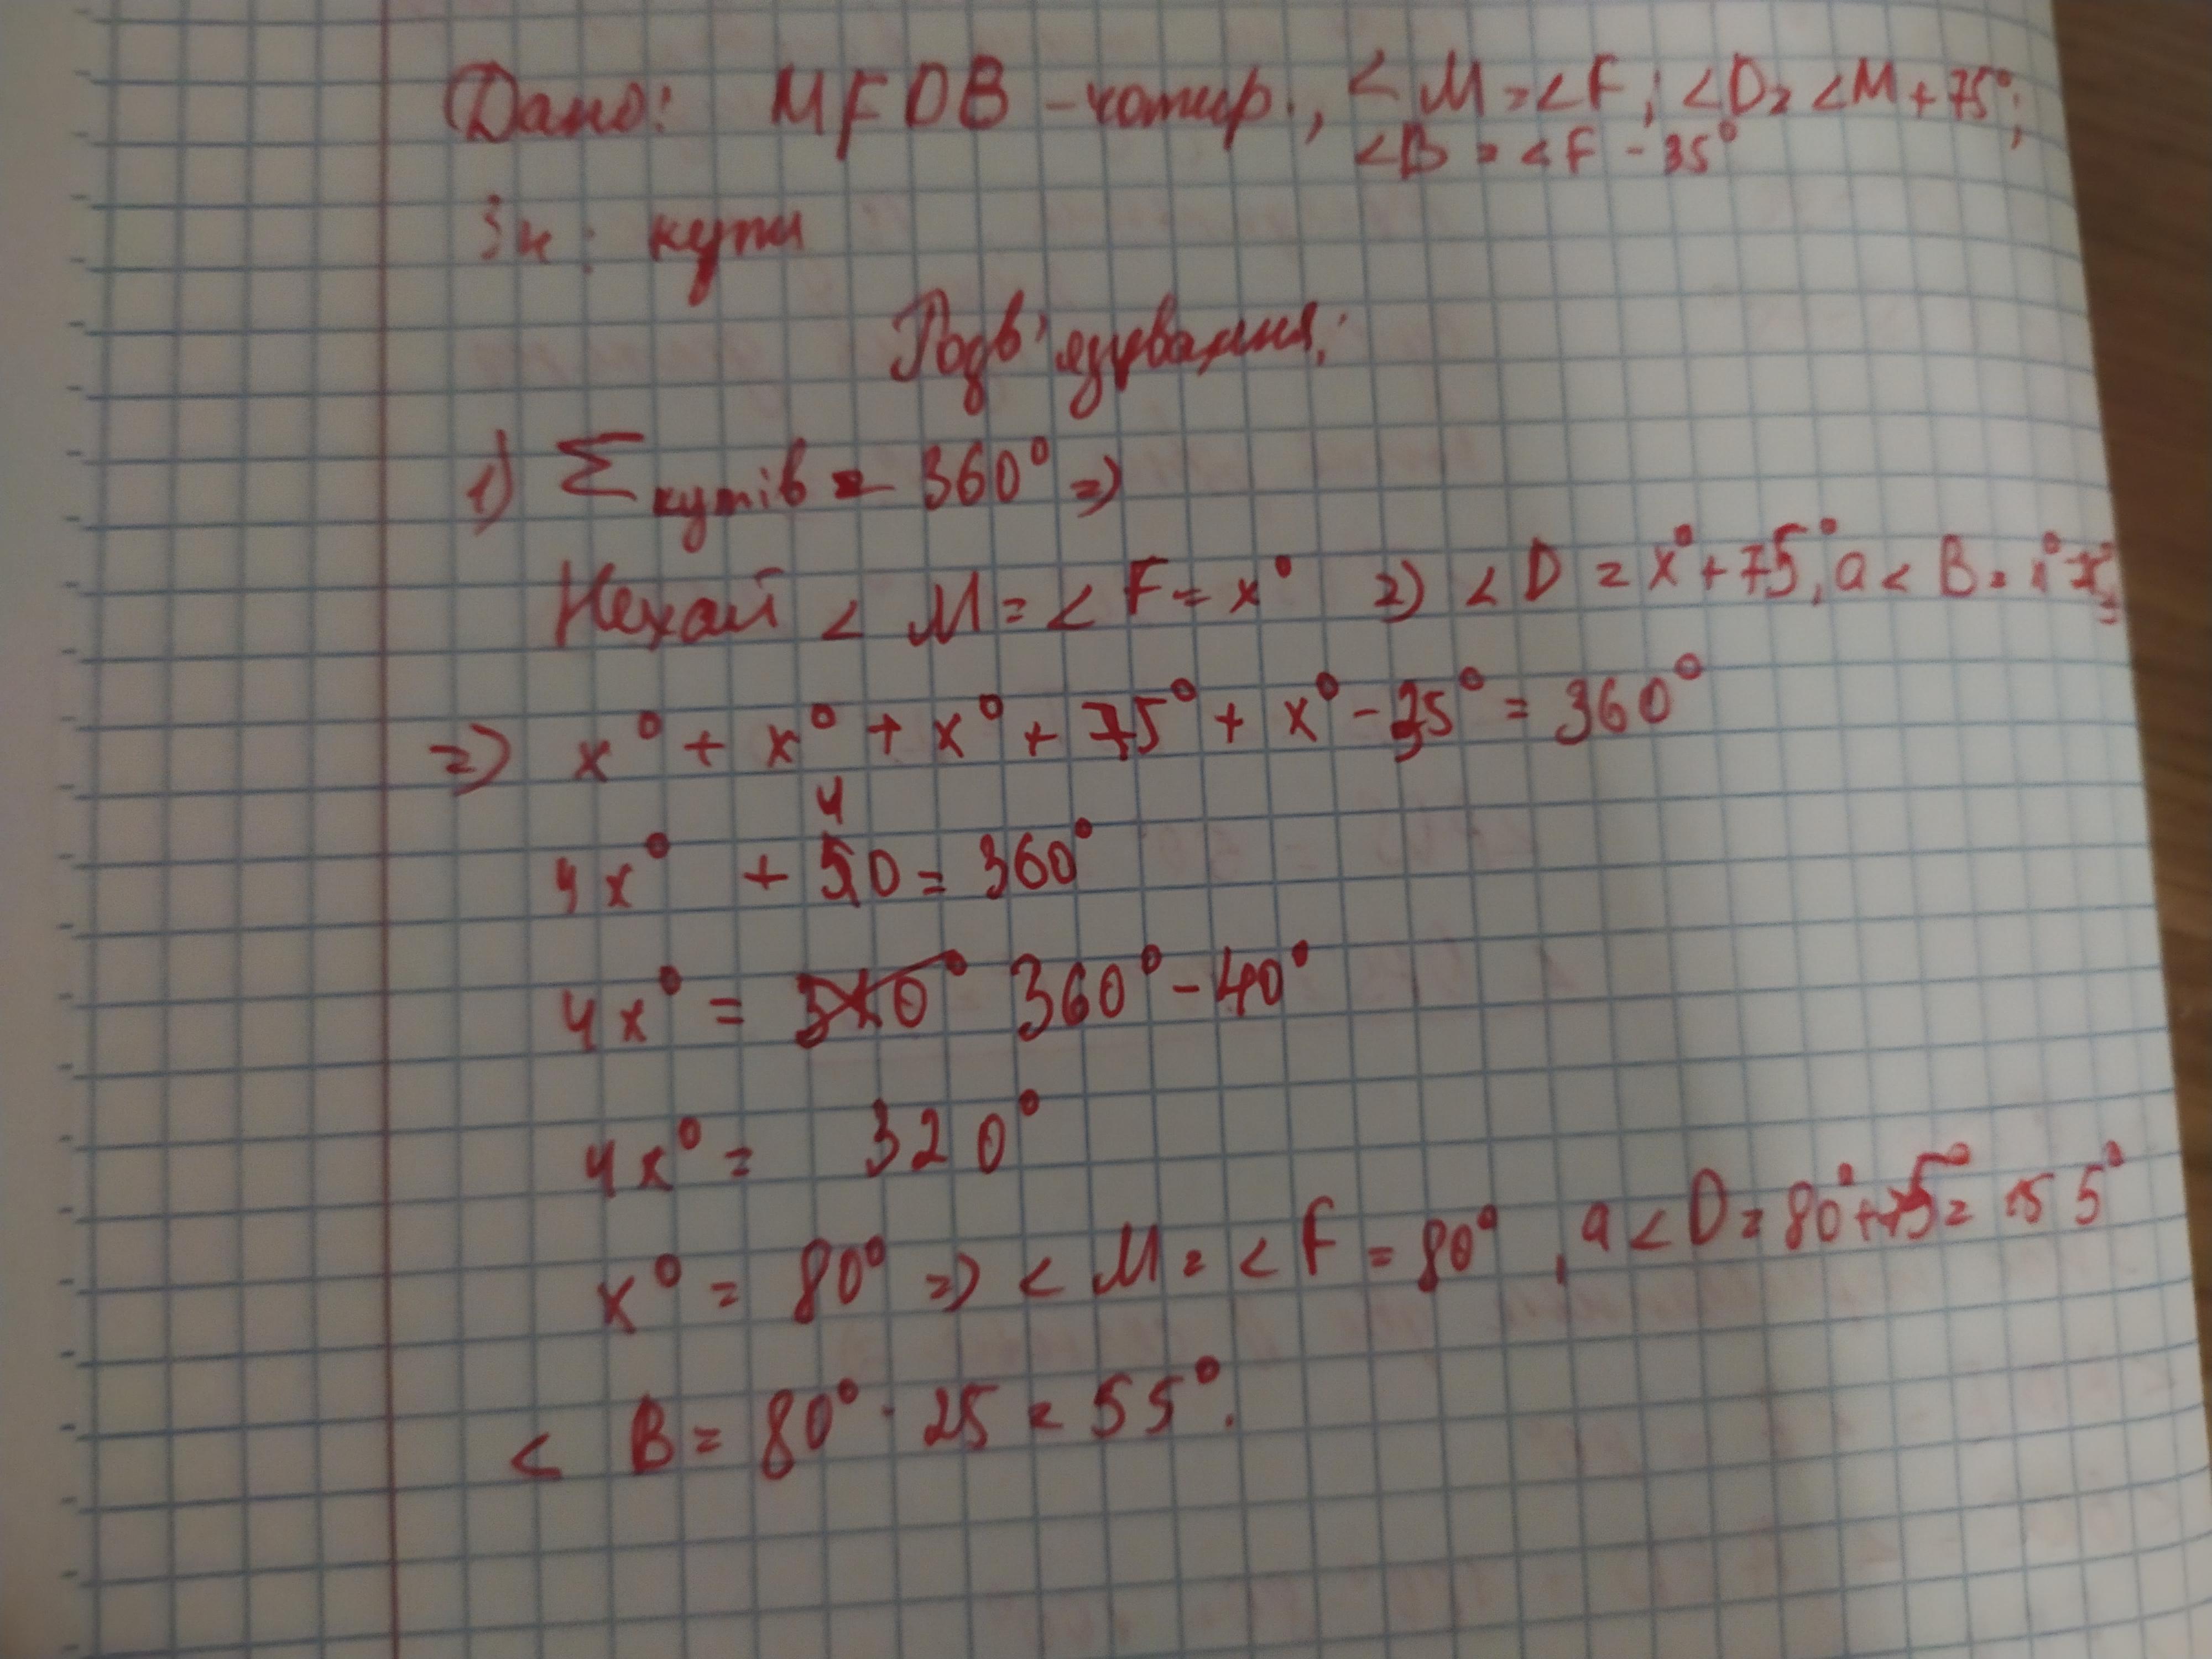 Дано: MFDB - чотир., <M = <F; <D = <M + 75°;
<B = <F - 35°
Зн: кути
Розв'язування:
1) Σ кутів = 360° =>
Нехай < M = < F = x° => < D = x° + 75°, а < B = x°
=> x° + x° + x° + 75° + x° - 35° = 360°
4x° + 40 = 360°
4x° = 340° 360° - 40°
4x° = 320°
x° = 80° => < M = < F = 80°, а < D = 80° + 75° = 155°
< B = 80° - 25 = 55°.